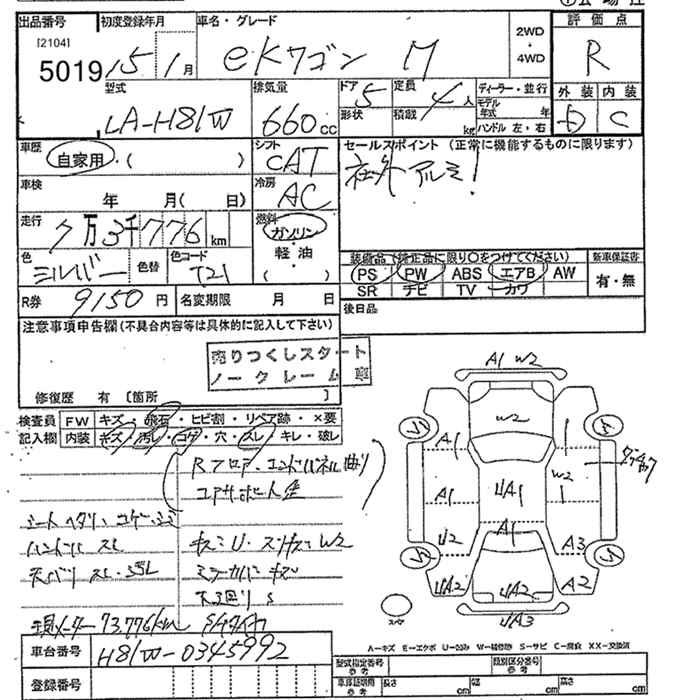 出品番号 初度登録年月 車名・グレード 2WD・4WD 評価点
[2104]
5019 15 1月 eKワゴン M R
型式 排気量 ドア 5 定員 4人 ディーラー・並行 外装 内装
LA-H81W 660cc 形状 積載 kg モデル年式 年 ハンドル 左・右 D C
車歴 シフト セールスポイント (正常に機能するものに限ります)
自家用・( ) CAT 社外アルミ!
車検 年 月( 日) 冷房 AC
走行 7万3千776km 燃料 ガソリン
色 シルバー 色替 色コード T21 軽油 ( )
装備品(純正品に限り○をつけてください) 新車保証書
PS PW ABS エアB AW 有・無
SR ナビ TV カワ
R券 9150円 名変期限 月 日 後日品
注意事項申告欄(不具合内容等は具体的に記入して下さい)
売りつくしスタート
ノークレーム車
修復歴 有 [箇所 ]
検査員 FW キズ・飛石・ヒビ割・リペア跡・×要
記入欄 内装 キズ・汚レ・コゲ・穴・スレ・キレ・破レ
Rフロア・エンドパネル曲り
シートヘタリ・コゲ・シミ
ハンドル スレ キズミU・スリキズミW2
天バリ スレ・汚レ
下廻りS
現メーター73,776km
A1 W2
W2
A1
W2
A1 UA1
A1
U2 A3
UA2 UA2 A2
UA3
スペア
A-キズ E-エクボ U-凹み W-補修跡 S-サビ C-腐食 XX-交換済
車台番号 H81W-0345992
登録番号
型式指定番号 参考 類別区分番号 参考
車庫証明用 参考 長さ cm 幅 cm 高さ cm